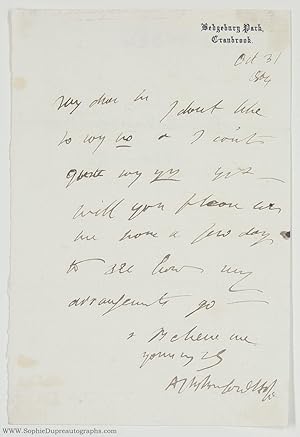 Bedgebury Park,
Cranbrook.
Oct 31
My dear Sir I dont like
to say no & I can't
quite say yes yet
will you please
me have a few days
to see how my
arrangements go —
& Believe me
yours
www.SophieDupreautographs.com